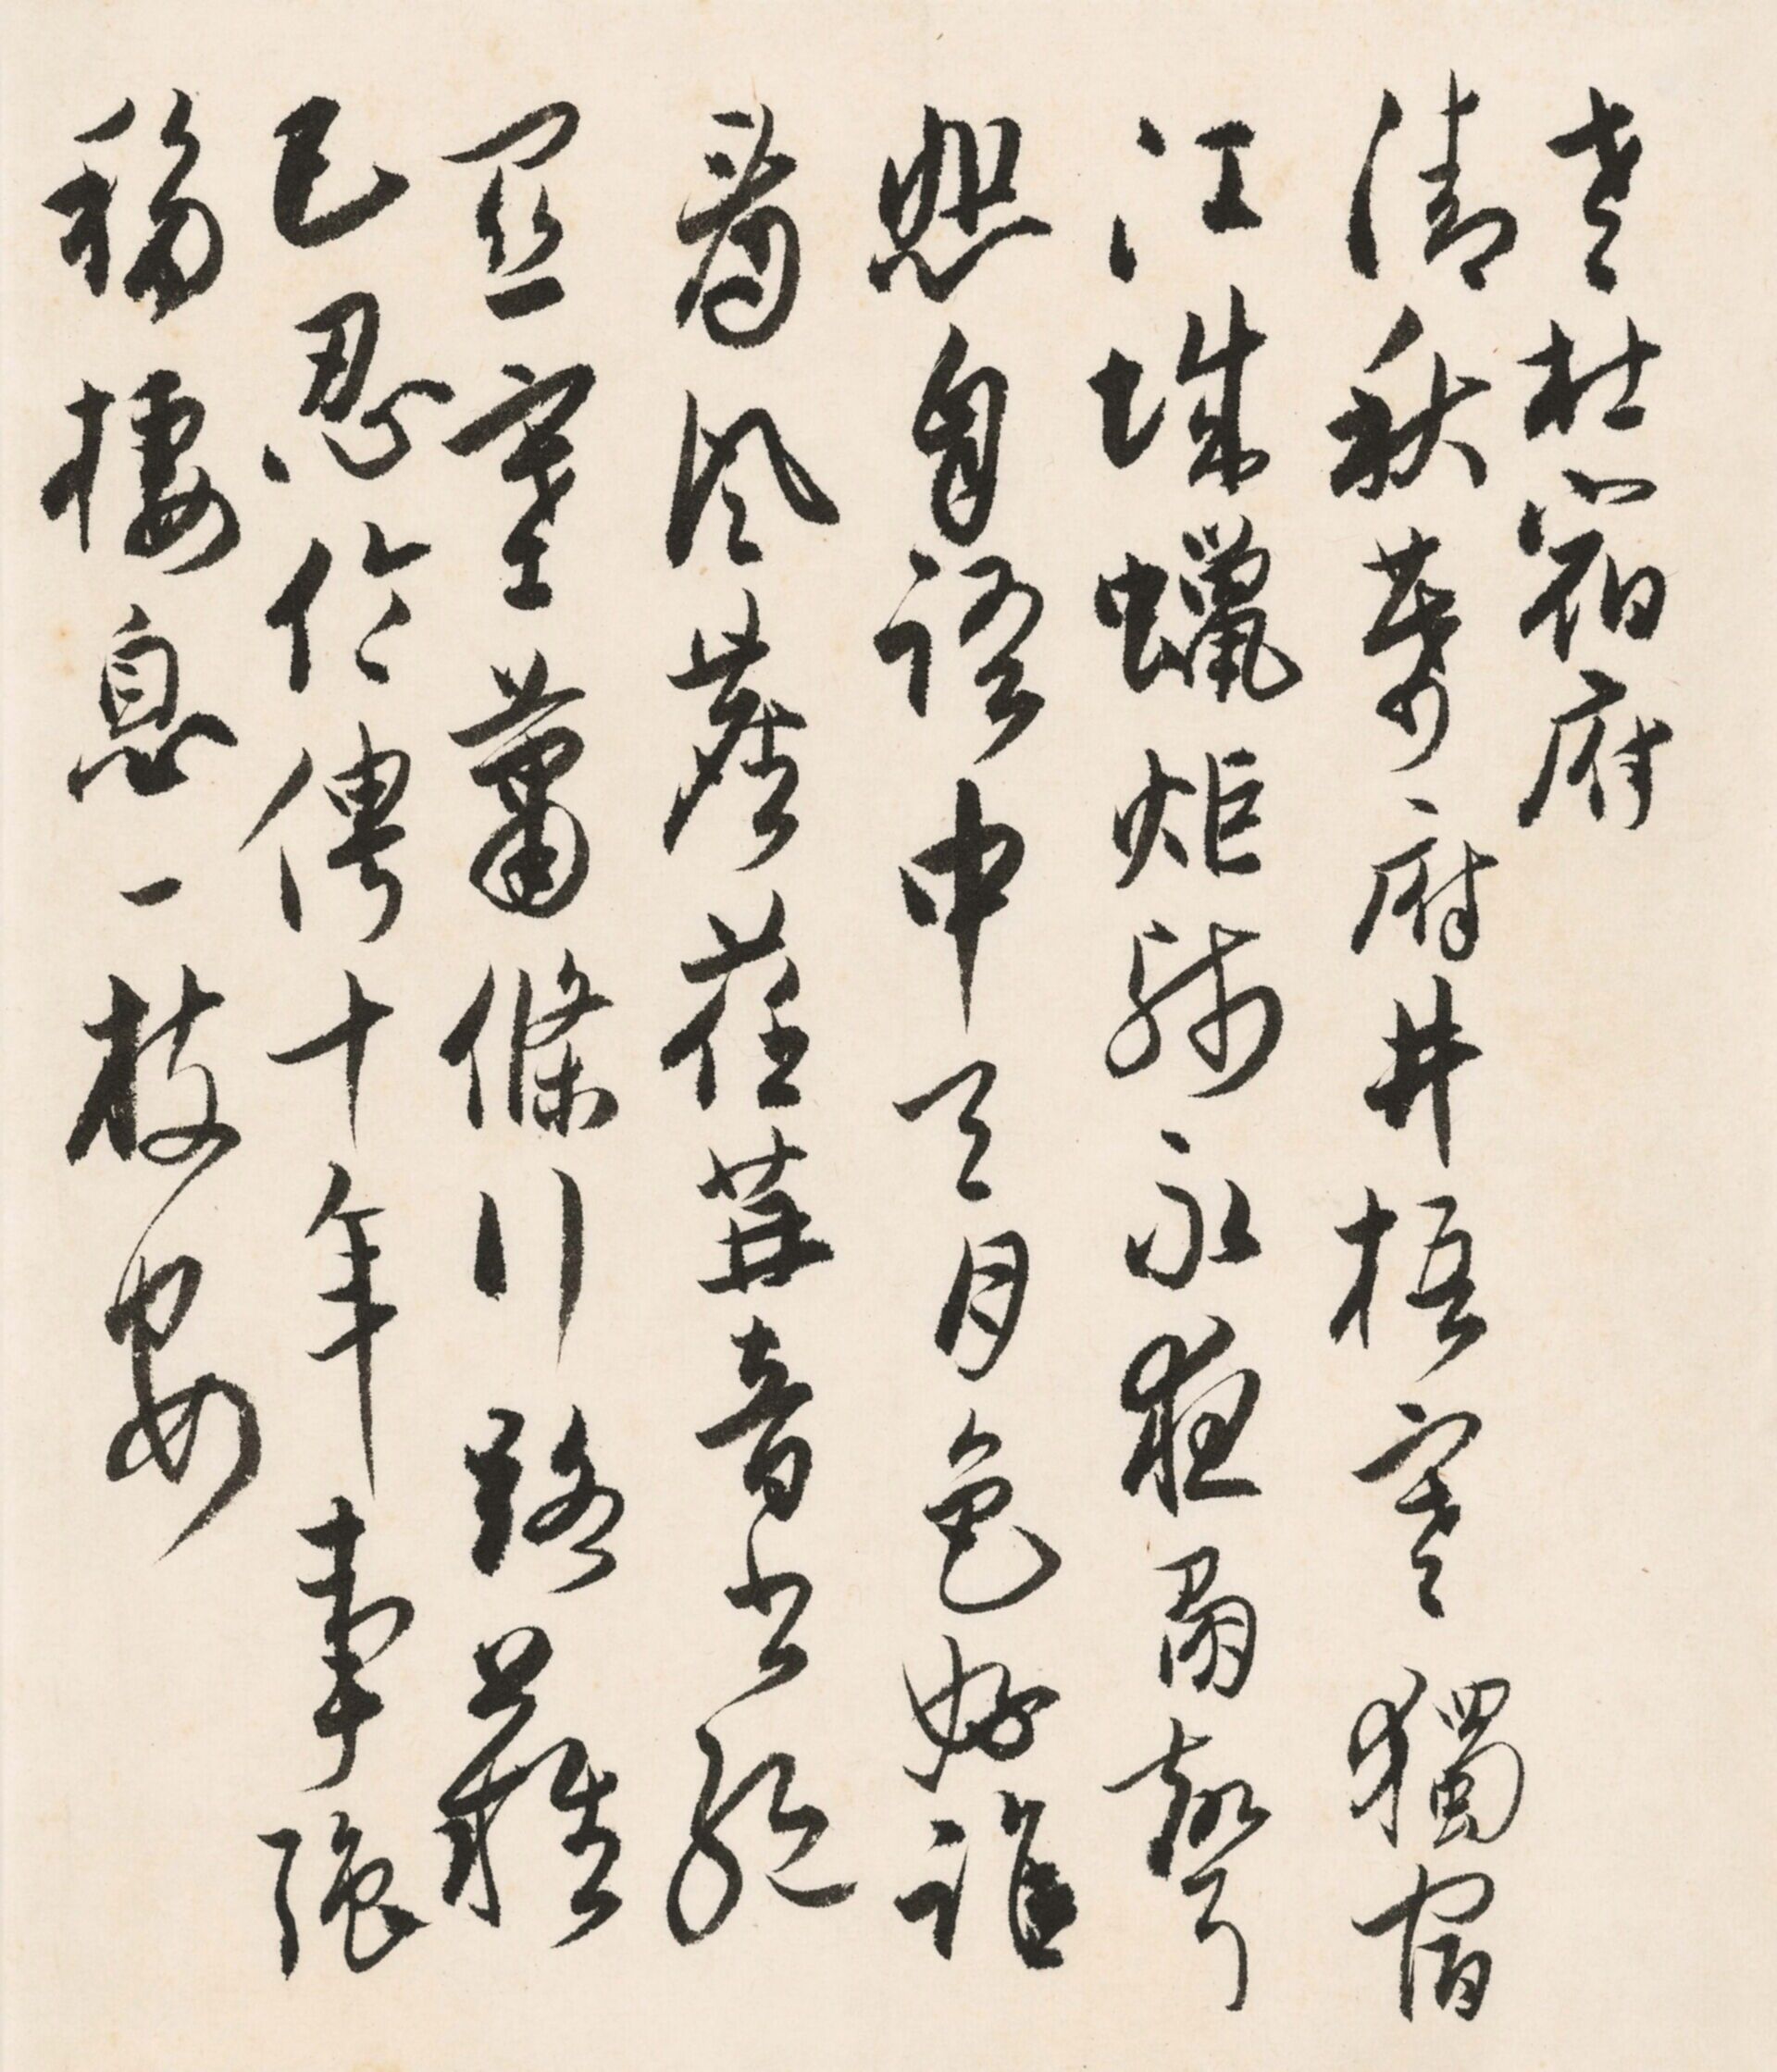 老杜宿府
清秋幕府井梧寒獨宿
江城蠟炬殘永夜角聲
悲自語中天月色好誰
看風塵荏苒音書絕
關塞蕭條行路難
已忍伶俜十年事強
移棲息一枝安